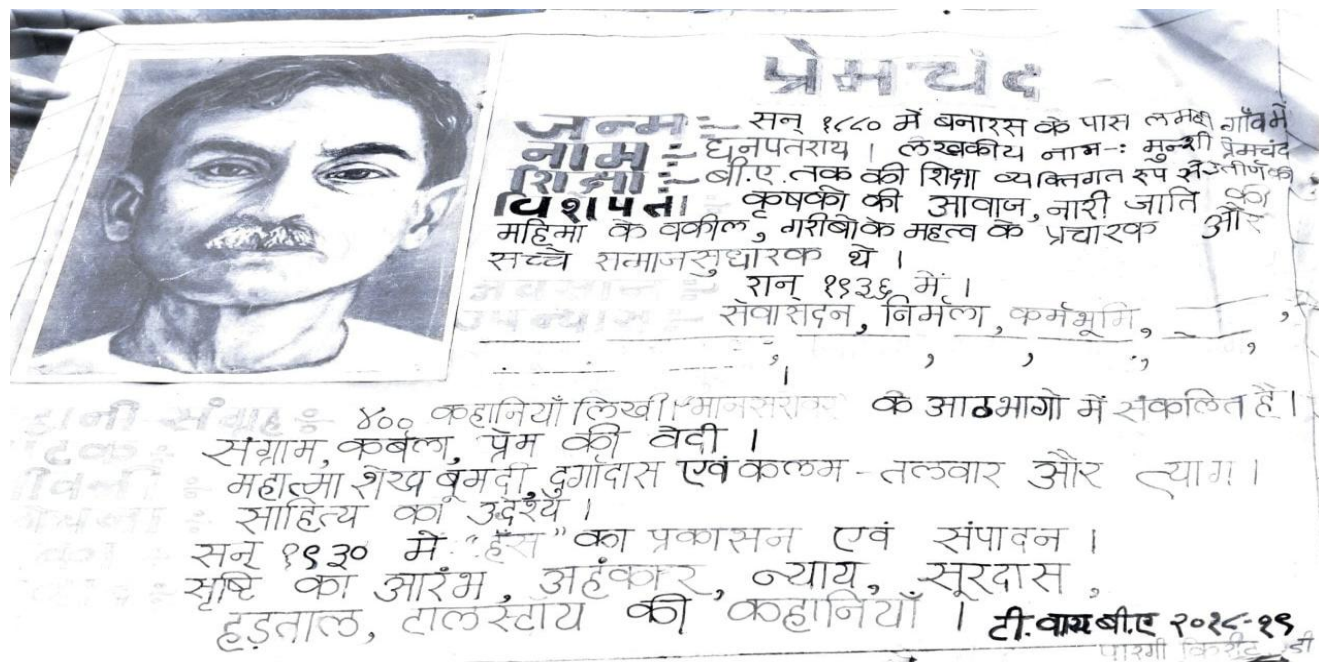 प्रेमचंद
जन्म :- सन् १८८० में बनारस के पास लमही गाँव में
नाम :- धनपतराय । लेखकीय नाम-: मुन्शी प्रेमचंद
शिक्षा :- बी.ए.तक की शिक्षा व्यक्तिगत रूप से उतीर्ण की
विशेषता कृषको की आवाज, नारी जाति की
महिमा के वकील, गरीबोके महत्व के प्रचारक और
सच्चे समाजसुधारक थे ।
अवसान :- सन् १९३६ में ।
उपन्यास :- सेवासदन, निर्मला, कर्मभूमि,
संग्रह :- ४०० कहानियाँ लिखी। "मानसरोवर के आठभागो में संकलित है।
संग्राम, कर्बला, प्रेम की वेदी ।
महात्मा शेख बूमदी, दुर्गादास एवं कलम - तलवार और त्याग ।
साहित्य का उद्देश्य ।
सन् १९३० में "हंस" का प्रकासन एवं संपादन ।
सृष्टि का आरंभ, अहंकार, न्याय, सूरदास,
हड़ताल, टालस्टॉय की कहानियाँ ।
टी.वाय बी.ए २०१८-१९
पारगी किरीट